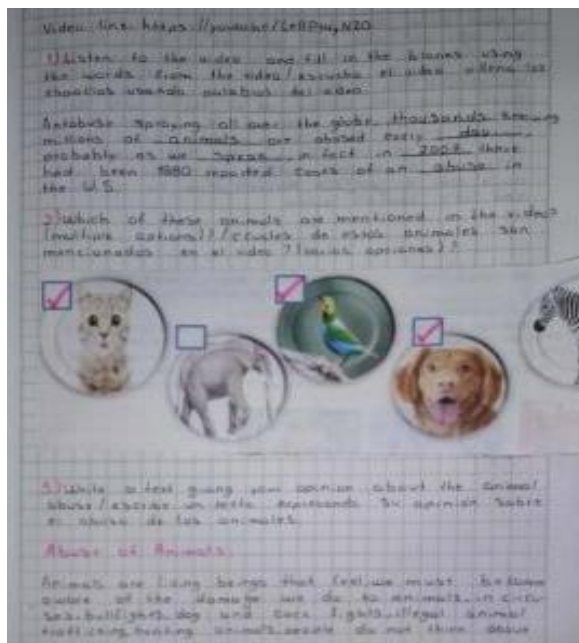 Video link https://youtu.be/
1) Listen to the video and fill in the blanks using
the words from the video/escucha el video rellena los
espacios usando palabras del video
spraying all over the globe thousands
millions of animals are abused every day
probably as we speak in fact in 200 there
had been 1880 reported cases of an abuse in
the U.S
2) Which of these animals are mentioned in the video?
(multiple options)?/ de estos animales son
mencionados en el video?(varias opciones)?
3) Write a text giving your opinion about the animal
abuse/escribe un texto expresando su opinion sobre
el abuso de los animales
Abuse of Animals.
Animals are living beings that feel, we must become
aware of the damage we do to animals in circu-
ses, bullfights, dog and cock fights, illegal animal
trafficking, hunting animals, people do not think about